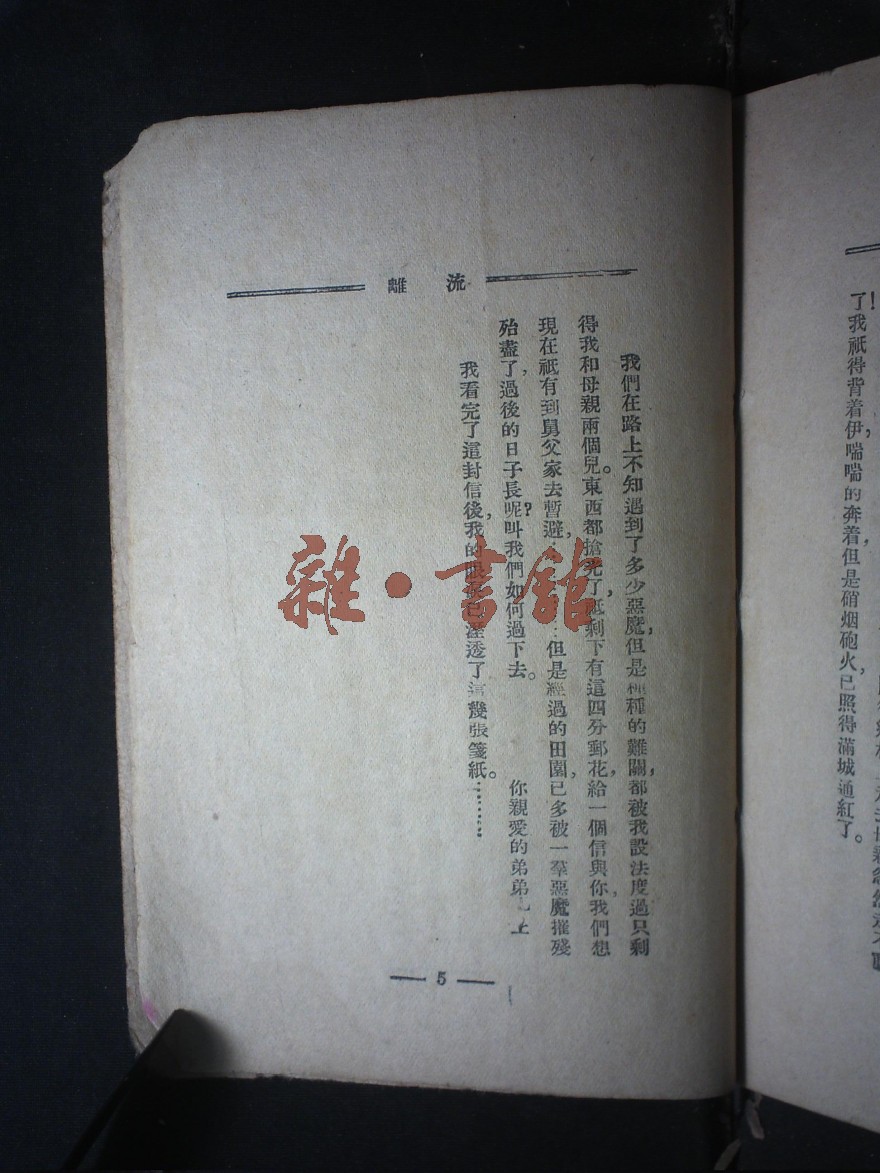 了我祇得背着伊喘喘的奔着，但是硝烟砲火，已照得滿城通紅了。
流離
我們在路上不知遇到了多少惡魔，但是種種的難關，都被我設法度過只剩
得我和母親兩個兒。東西都搶完了，祇剩下有這四分郵花，給一個信與你，我們想
現在祇有到舅父家去暫避，但是經過的田園，已多被一羣惡魔摧殘
殆盡了，過後的日子長呢？叫我們如何過下去。
你親愛的弟弟上
我看完了這封信後，我的眼已溼透了這幾張箋紙。………
5
雜·書館